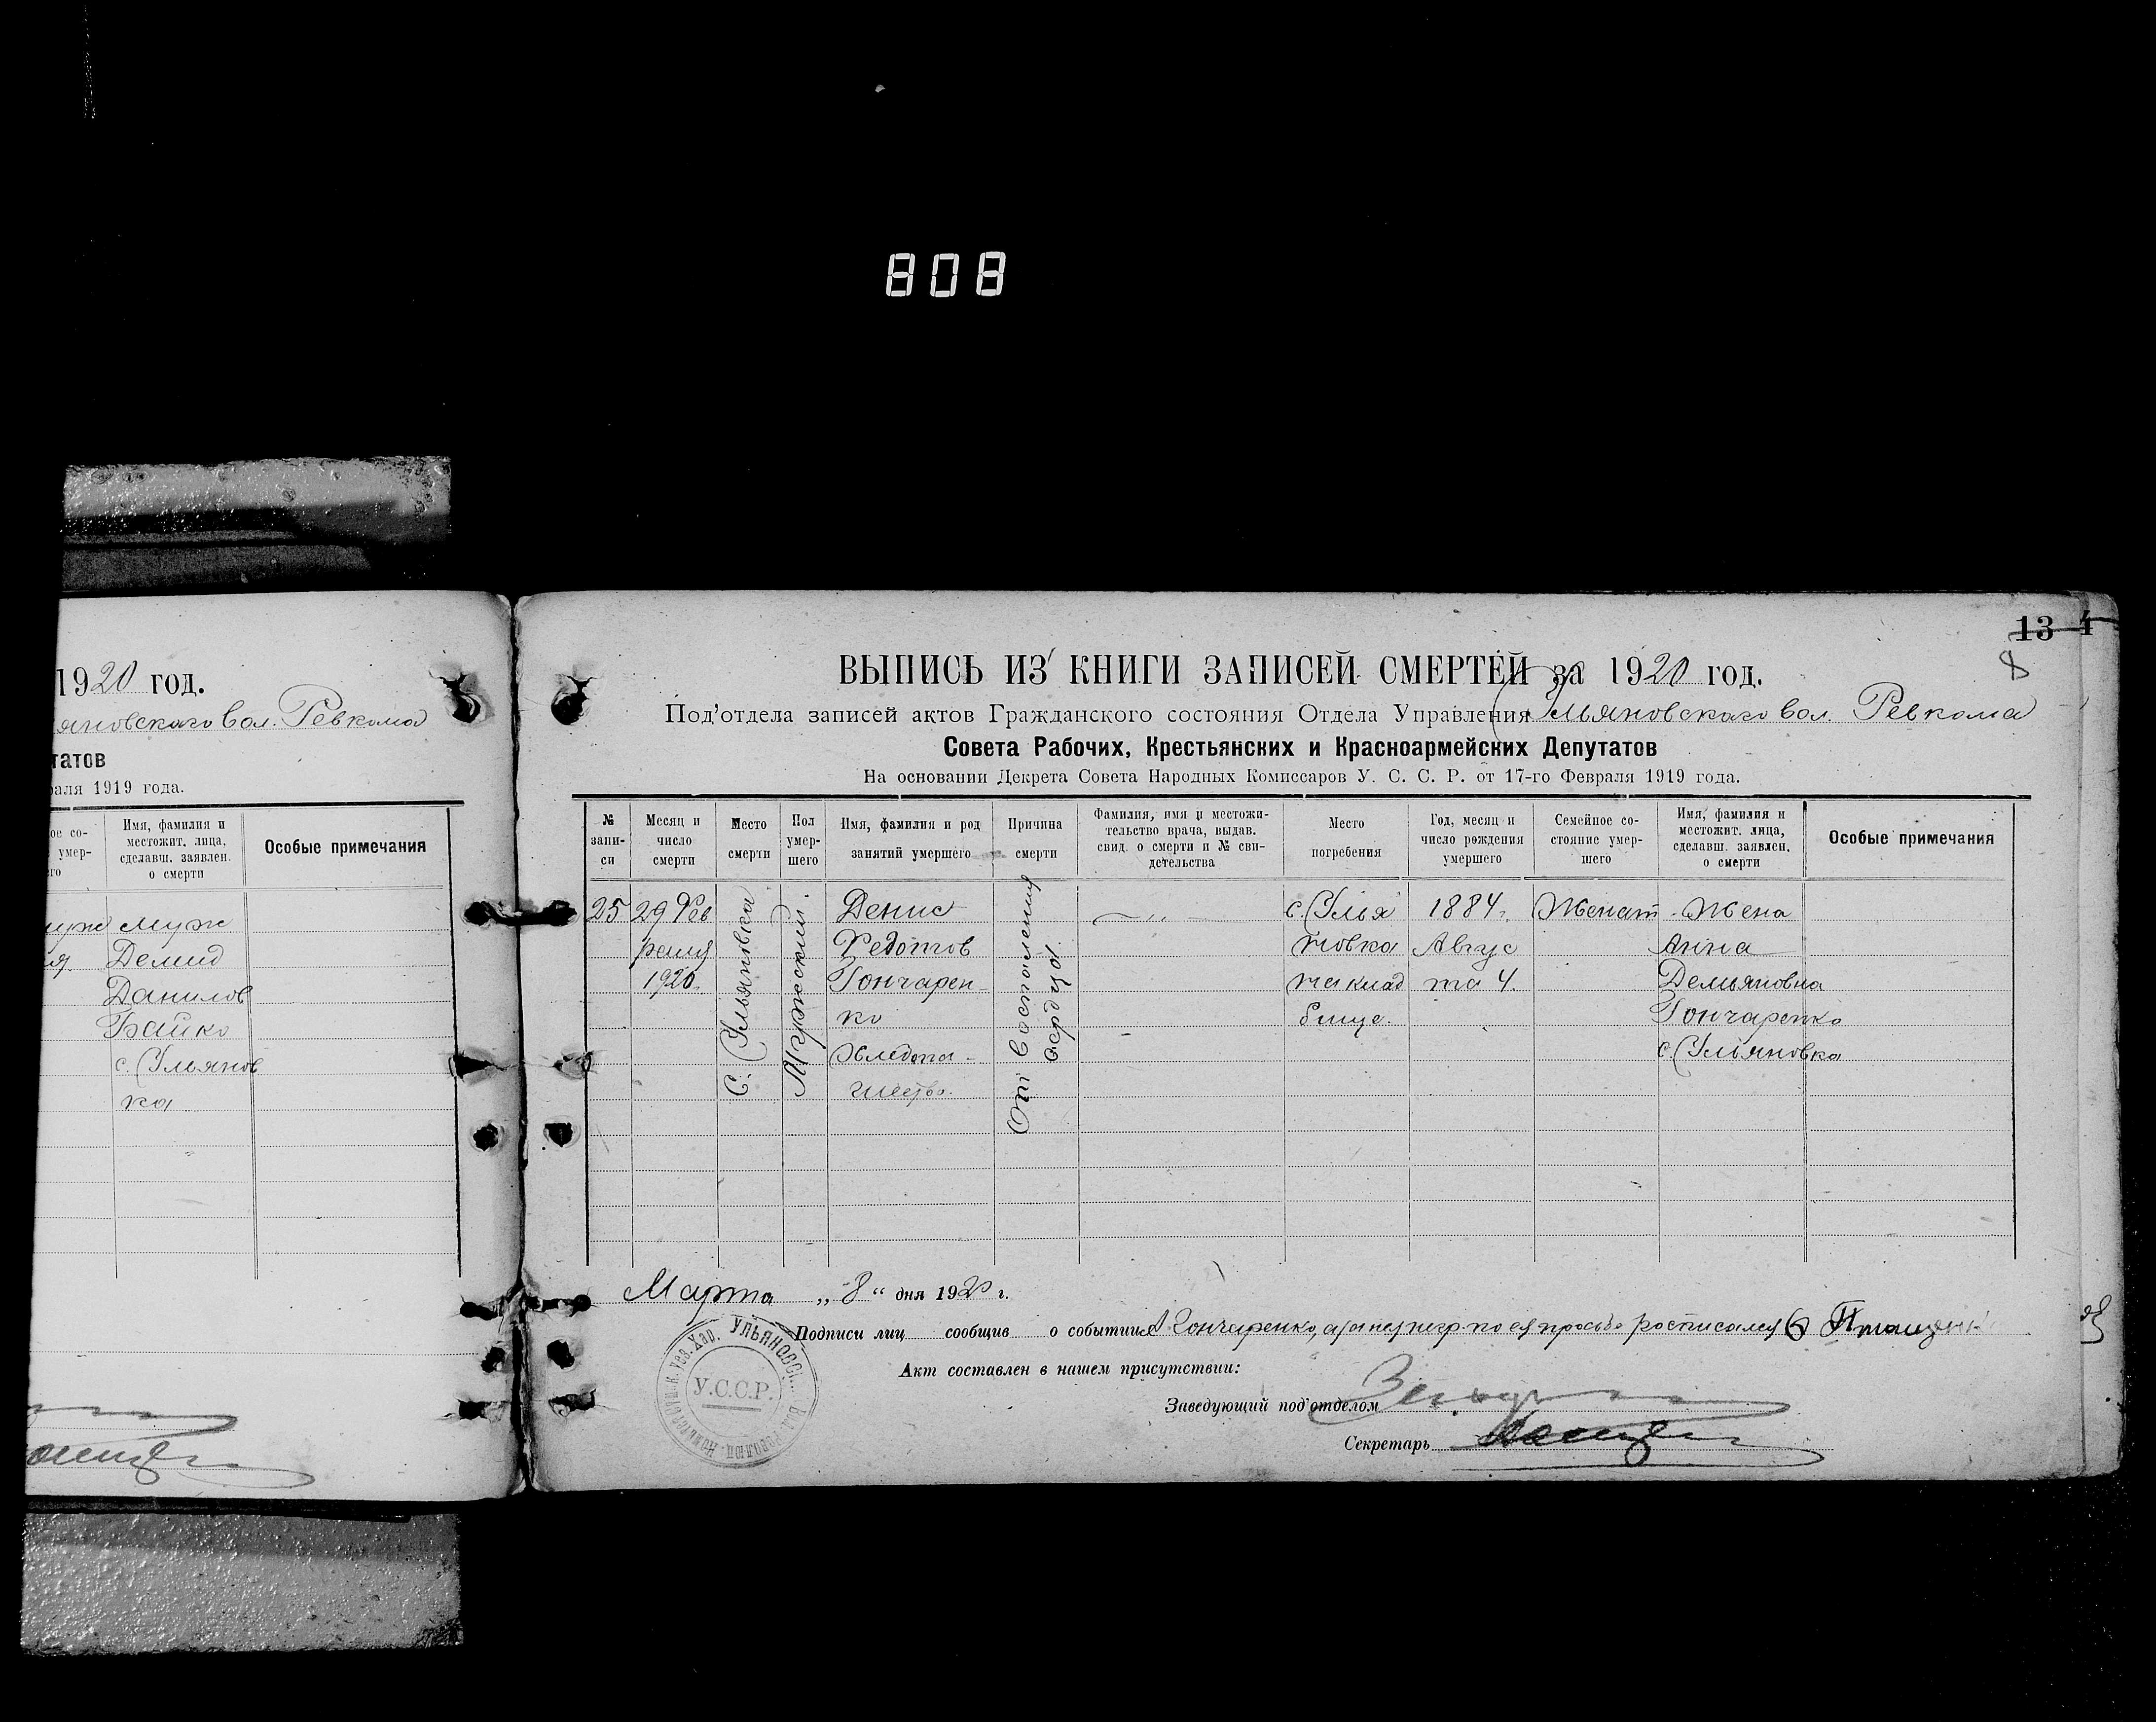 808
1920 год.
яновского вол. Ревкома
татов
раля 1919 года.
ое со-
умер-
го
Имя, фамилия и
местожит. лица,
сделавш. заявлен.
о смерти
Особые примечания
муж
Демид
Данилов
Байко
с. Ульянов
ка
13 4
8
ВЫПИСЬ ИЗ КНИГИ ЗАПИСЕЙ СМЕРТЕЙ за 1920 год.
Под'отдела записей актов Гражданского состояния Отдела Управления Ульяновского вол. Ревкома
Совета Рабочих, Крестьянских и Красноармейских Депутатов
На основании Декрета Совета Народных Комиссаров У. С. С. Р. от 17-го Февраля 1919 года.
№
запи-
си
Месяц и
число
смерти
Место
смерти
Пол
умер-
шего
Имя, фамилия и род
занятий умершего
Причина
смерти
Фамилия, имя и местожи-
тельство врача, выдав.
свид. о смерти и № сви-
детельства
Место
погребения
Год, месяц и
число рождения
умершего
Семейное со-
стояние умер-
шего
Имя, фамилия и
местожит. лица,
сделавш. заявлен.
о смерти
Особые примечания
25
29 Фев
раля
1920.
С. Ульяновка
Мужский
Денис
Федотов
Гончарен-
ко
Хлебопа-
шество.
От воспаления
сердца.
с. Улья
новка
на клад
бище.
1884,
Авгус
та 4.
Женат
Жена
Анна
Демьяновна
Гончаренко
с. Ульяновка
Марта „ 8 “ дня 1920 г.
Подписи лиц сообщив о событии А. Гончаренко, а за негр. по ея просьбе росписался
Акт составлен в нашем присутствии:
Заведующий под'отделом
Секретарь
У.С.С.Р.